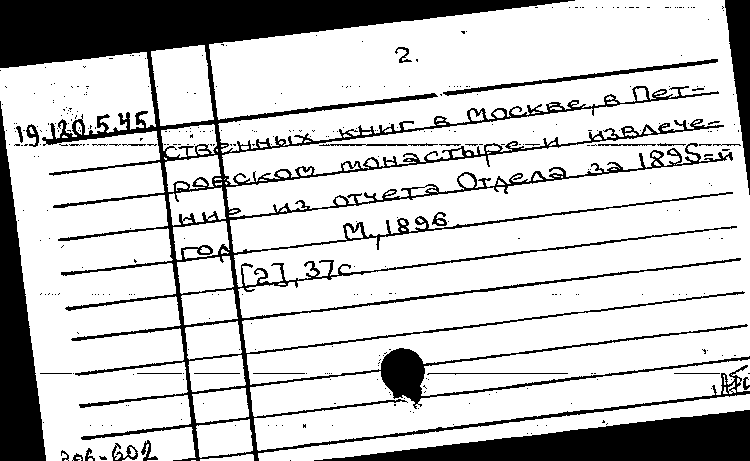 2.
19.120.5.45.
ственных книг в Москве, в Пет=
ровском монастыре и извлече=
ние из отчета Отдела за 1895=й
год. М., 1896.
[2], 37с.
306-602